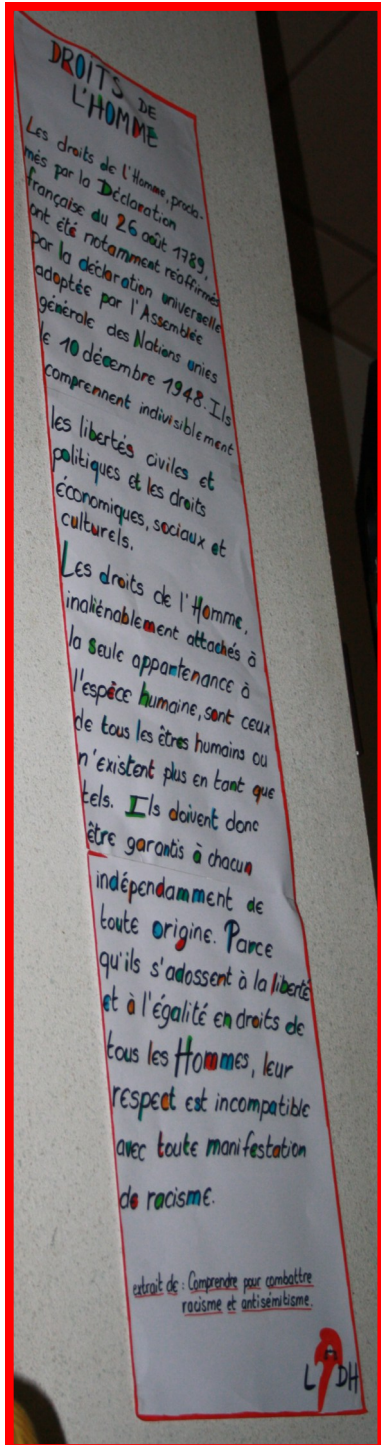 DROITS DE
L'HOMME
Les droits de l'Homme, procla-
més par la Déclaration
française du 26 août 1789,
ont été notamment réaffirmés
par la déclaration universelle
adoptée par l'Assemblée
générale des Nations unies
le 10 décembre 1948. Ils
comprennent indivisiblement
les libertés civiles et
politiques et les droits
économiques, sociaux et
culturels.
Les droits de l'Homme,
inaliénablement attachés à
la seule appartenance à
l'espèce humaine, sont ceux
de tous les êtres humains ou
n'existent plus en tant que
tels. Ils doivent donc
être garantis à chacun
indépendamment de
toute origine. Parce
qu'ils s'adossent à la liberté
et à l'égalité en droits de
tous les Hommes, leur
respect est incompatible
avec toute manifestation
de racisme.
extrait de : Comprendre pour combattre
racisme et antisémitisme.
L DH